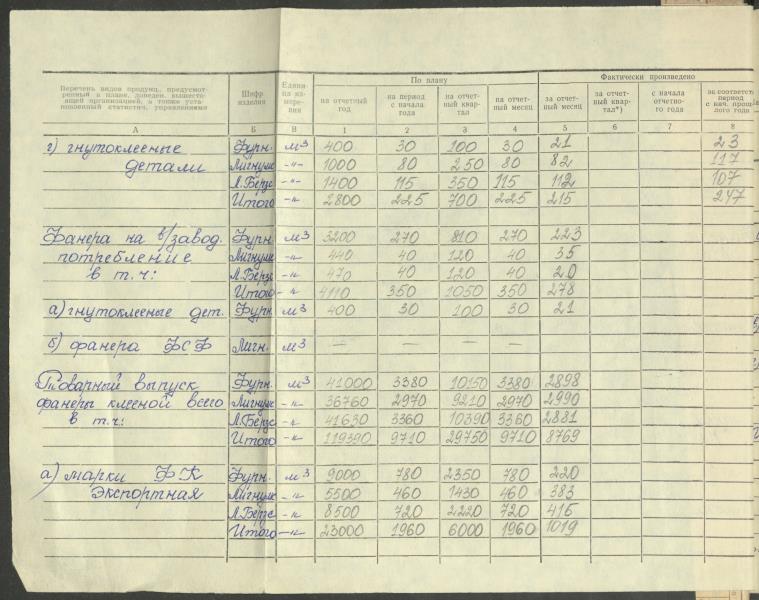 По плану Фактически произведено
Перечень видов продукц., предусмотренный в плане, доведен. вышестоящей организацией, а также установленный статистич. управлениями Шифр изделия Единица измерения на отчетный год на период с начала года на отчетный квартал на отчетный месяц за отчетный месяц за отчетный квартал*) с начала отчетного года за соответст период с нач. прошлого года
А Б В 1 2 3 4 5 6 7 8
г) гнутоклееные Фурн. м3 400 30 100 30 21 23
детали Лигнумс -"- 1000 80 250 80 82 117
Л.Берзс -"- 1400 115 350 115 112 107
Итого -"- 2800 225 700 225 215 247
Фанера на в/завод. Фурн. м3 3200 270 810 270 223
потребление Лигнумс -"- 440 40 120 40 35
в т.ч: Л.Берзс -"- 470 40 120 40 20
Итого -"- 4110 350 1050 350 278
а) гнутоклееные дет. Фурн. м3 400 30 100 30 21
б) фанера ФСФ Лигн. м3 — — — —
Товарный выпуск Фурн. м3 41000 3380 10150 3380 2898
фанеры клееной всего Лигнумс -"- 36760 2970 9210 2970 2990
в т.ч: Л.Берзс -"- 41630 3360 10390 3360 2881
Итого -"- 119390 9710 29750 9710 8769
а) марки ФК Фурн. м3 9000 780 2350 780 220
Экспортная Лигнумс -"- 5500 460 1430 460 383
Л.Берзс -"- 8500 720 2220 720 416
Итого -"- 23000 1960 6000 1960 1019